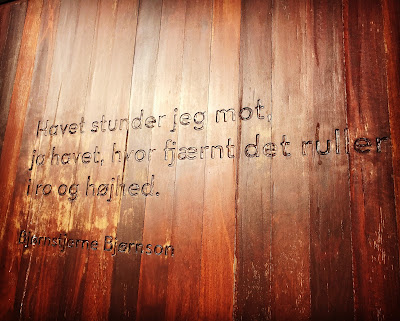 Havet stunder jeg mot,
ja havet, hvor fjærnt det ruller
i ro og højhed.
Bjørnstjerne Bjørnson